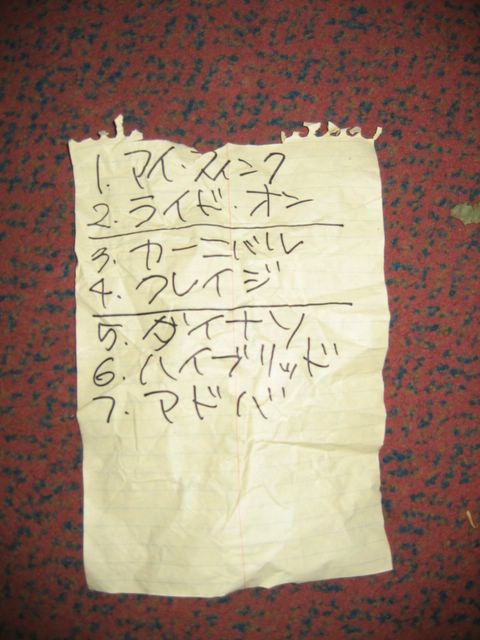 1. マイ・スィンク
2. ライド・オン
3. カーニバル
4. クレイジ
5. ダイナソ
6. ハイブリッド
7. マドバ